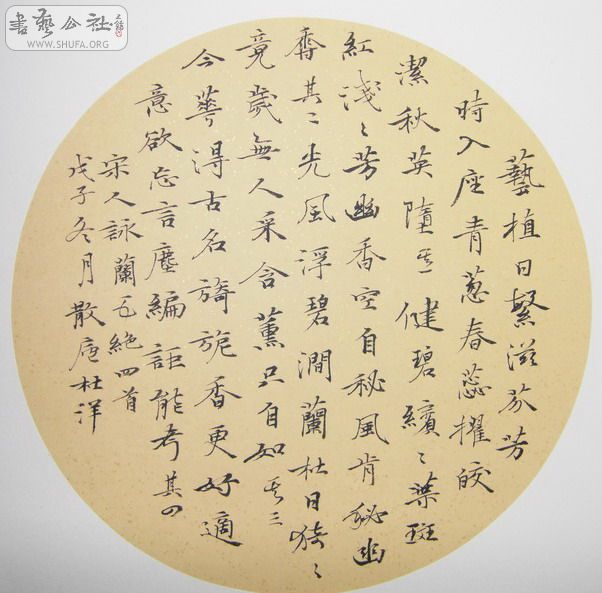 書藝公社
WWW.SHUFA.ORG
藝植日繁滋芬芳
時入座青蔥春蕊擢皎
潔秋英墮其一健碧繽〻葉斑
紅淺〻芳幽香空自秘風肯秘幽
香其二光風浮碧澗蘭杜日猗〻
竟歲無人采含薰只自知其三
今華得古名旖旎香更好適
意欲忘言塵編詎能考其四
宋人詠蘭五絕四首
戊子冬月散庵杜洋